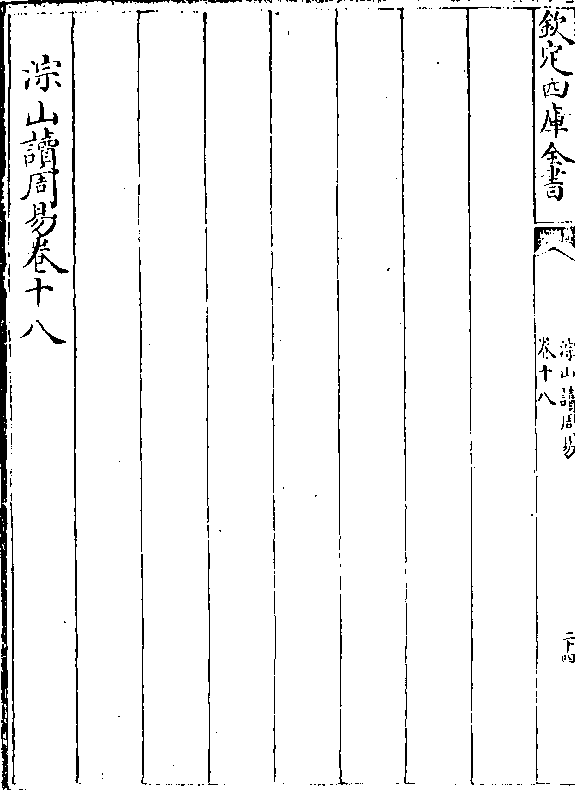 欽定四庫全書
淙山讀周易
卷十八
二十四
淙山讀周易卷十八